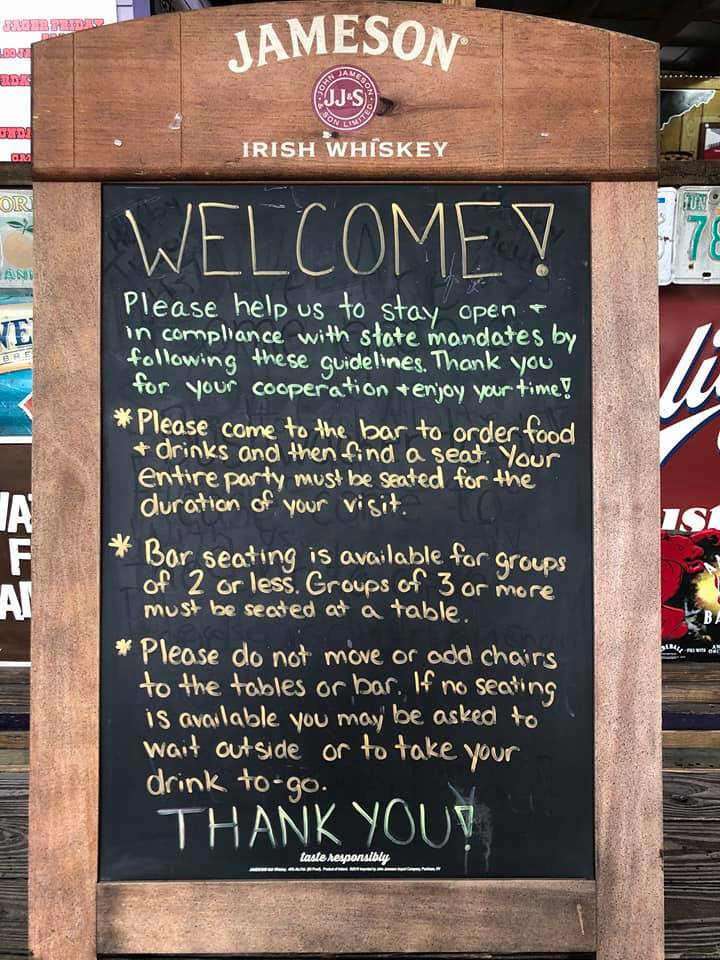 JAGER FRIDAY
JAMESON
JOHN JAMESON
JJ&S
& SON LIMITED
IRISH WHISKEY
WELCOME!
Please help us to stay open +
in compliance with state mandates by
following these guidelines. Thank you
for your cooperation + enjoy your time!
* Please come to the bar to order food
+ drinks and then find a seat. Your
entire party must be seated for the
duration of your visit.
* Bar seating is available for groups
of 2 or less. Groups of 3 or more
must be seated at a table.
* Please do not move or add chairs
to the tables or bar. If no seating
is available you may be asked to
wait outside or to take your
drink to-go.
THANK YOU!
taste responsibly
78